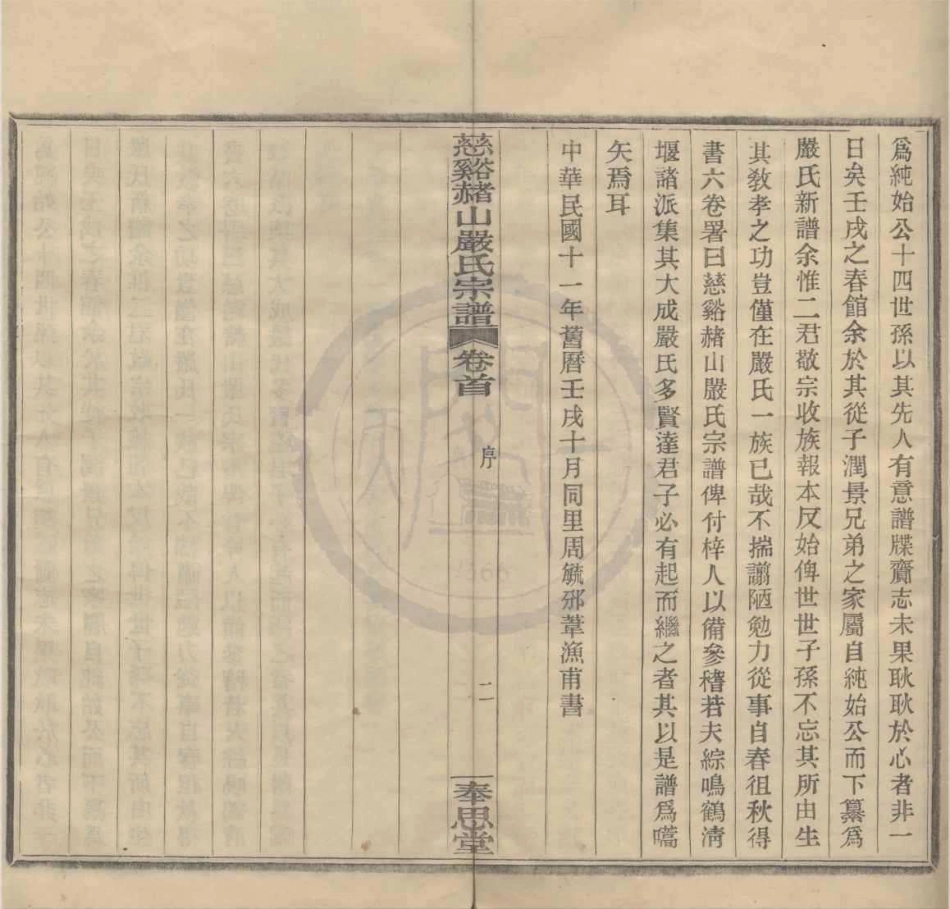 爲純始公十四世孫以其先人有意譜牒齎志未果耿耿於心者非一
日矣壬戌之春館余於其從子潤景兄弟之家屬自純始公而下纂爲
嚴氏新譜余惟二君敬宗收族報本反始俾世世子孫不忘其所由生
其敎孝之功豈僅在嚴氏一族已哉不揣譾陋勉力從事自春徂秋得
書六卷署曰慈谿赭山嚴氏宗譜俾付梓人以備參稽若夫綜鳴鶴淸
堰諸派集其大成嚴氏多賢達君子必有起而繼之者其以是譜爲嚆
矢焉耳
中華民國十一年舊曆壬戌十月同里周毓邠葦漁甫書
慈谿赭山嚴氏宗譜 卷首 序 二 奉思堂